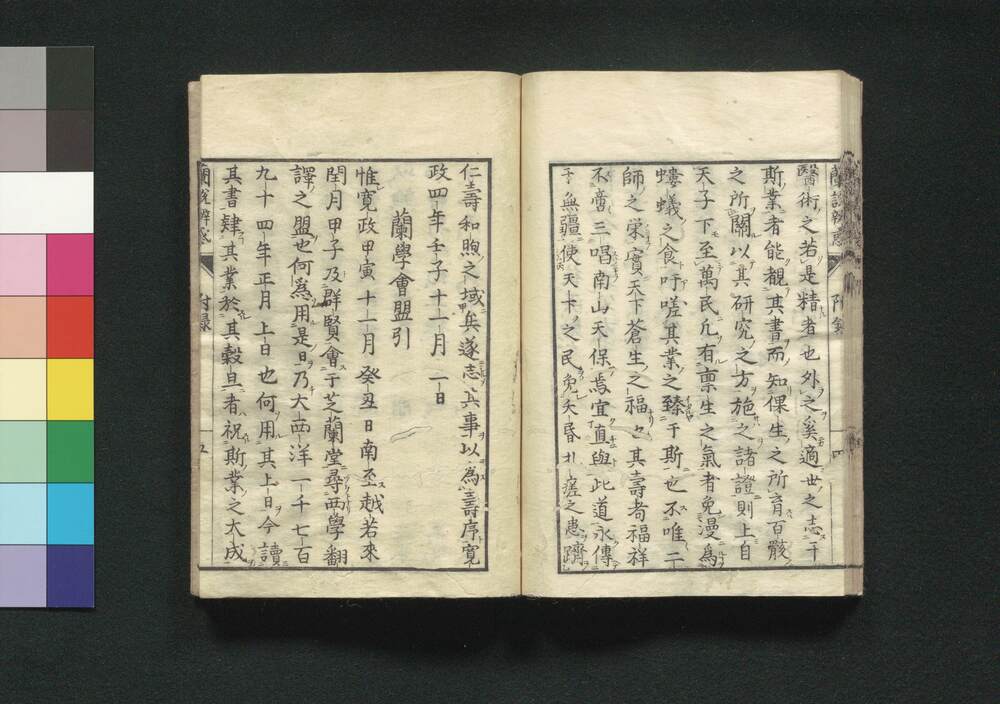 蘭説辨惑 附錄 四
醫術之若是精者也外之奚適世之志于
斯業者能觀其書而知倮生之所育百骸
之所關以其研究之方施之諸證則上自
天子下至萬民凡有稟生之氣者免漫爲
螻蟻之食吁嗟其業之臻于斯也不唯二
師之榮實天下蒼生之福也其壽者福祥
不啻三唱南山天保焉宜直與此道永傳
于無疆使天下之民免夭昏札瘥之患躋
仁壽和煦之域矣遂志其事以爲壽序寛
政四年壬子十一月二日
蘭學會盟引
惟寛政甲寅十一月癸丑日南至越若來
閏月甲子及群賢會于芝蘭堂尋西學翻
譯之盟也何爲用是日乃大西洋一千七百
九十四年正月上日也何用其上日今讀
其書肄其業於其穀旦者祝斯業之大成
蘭説辨惑 附錄 五